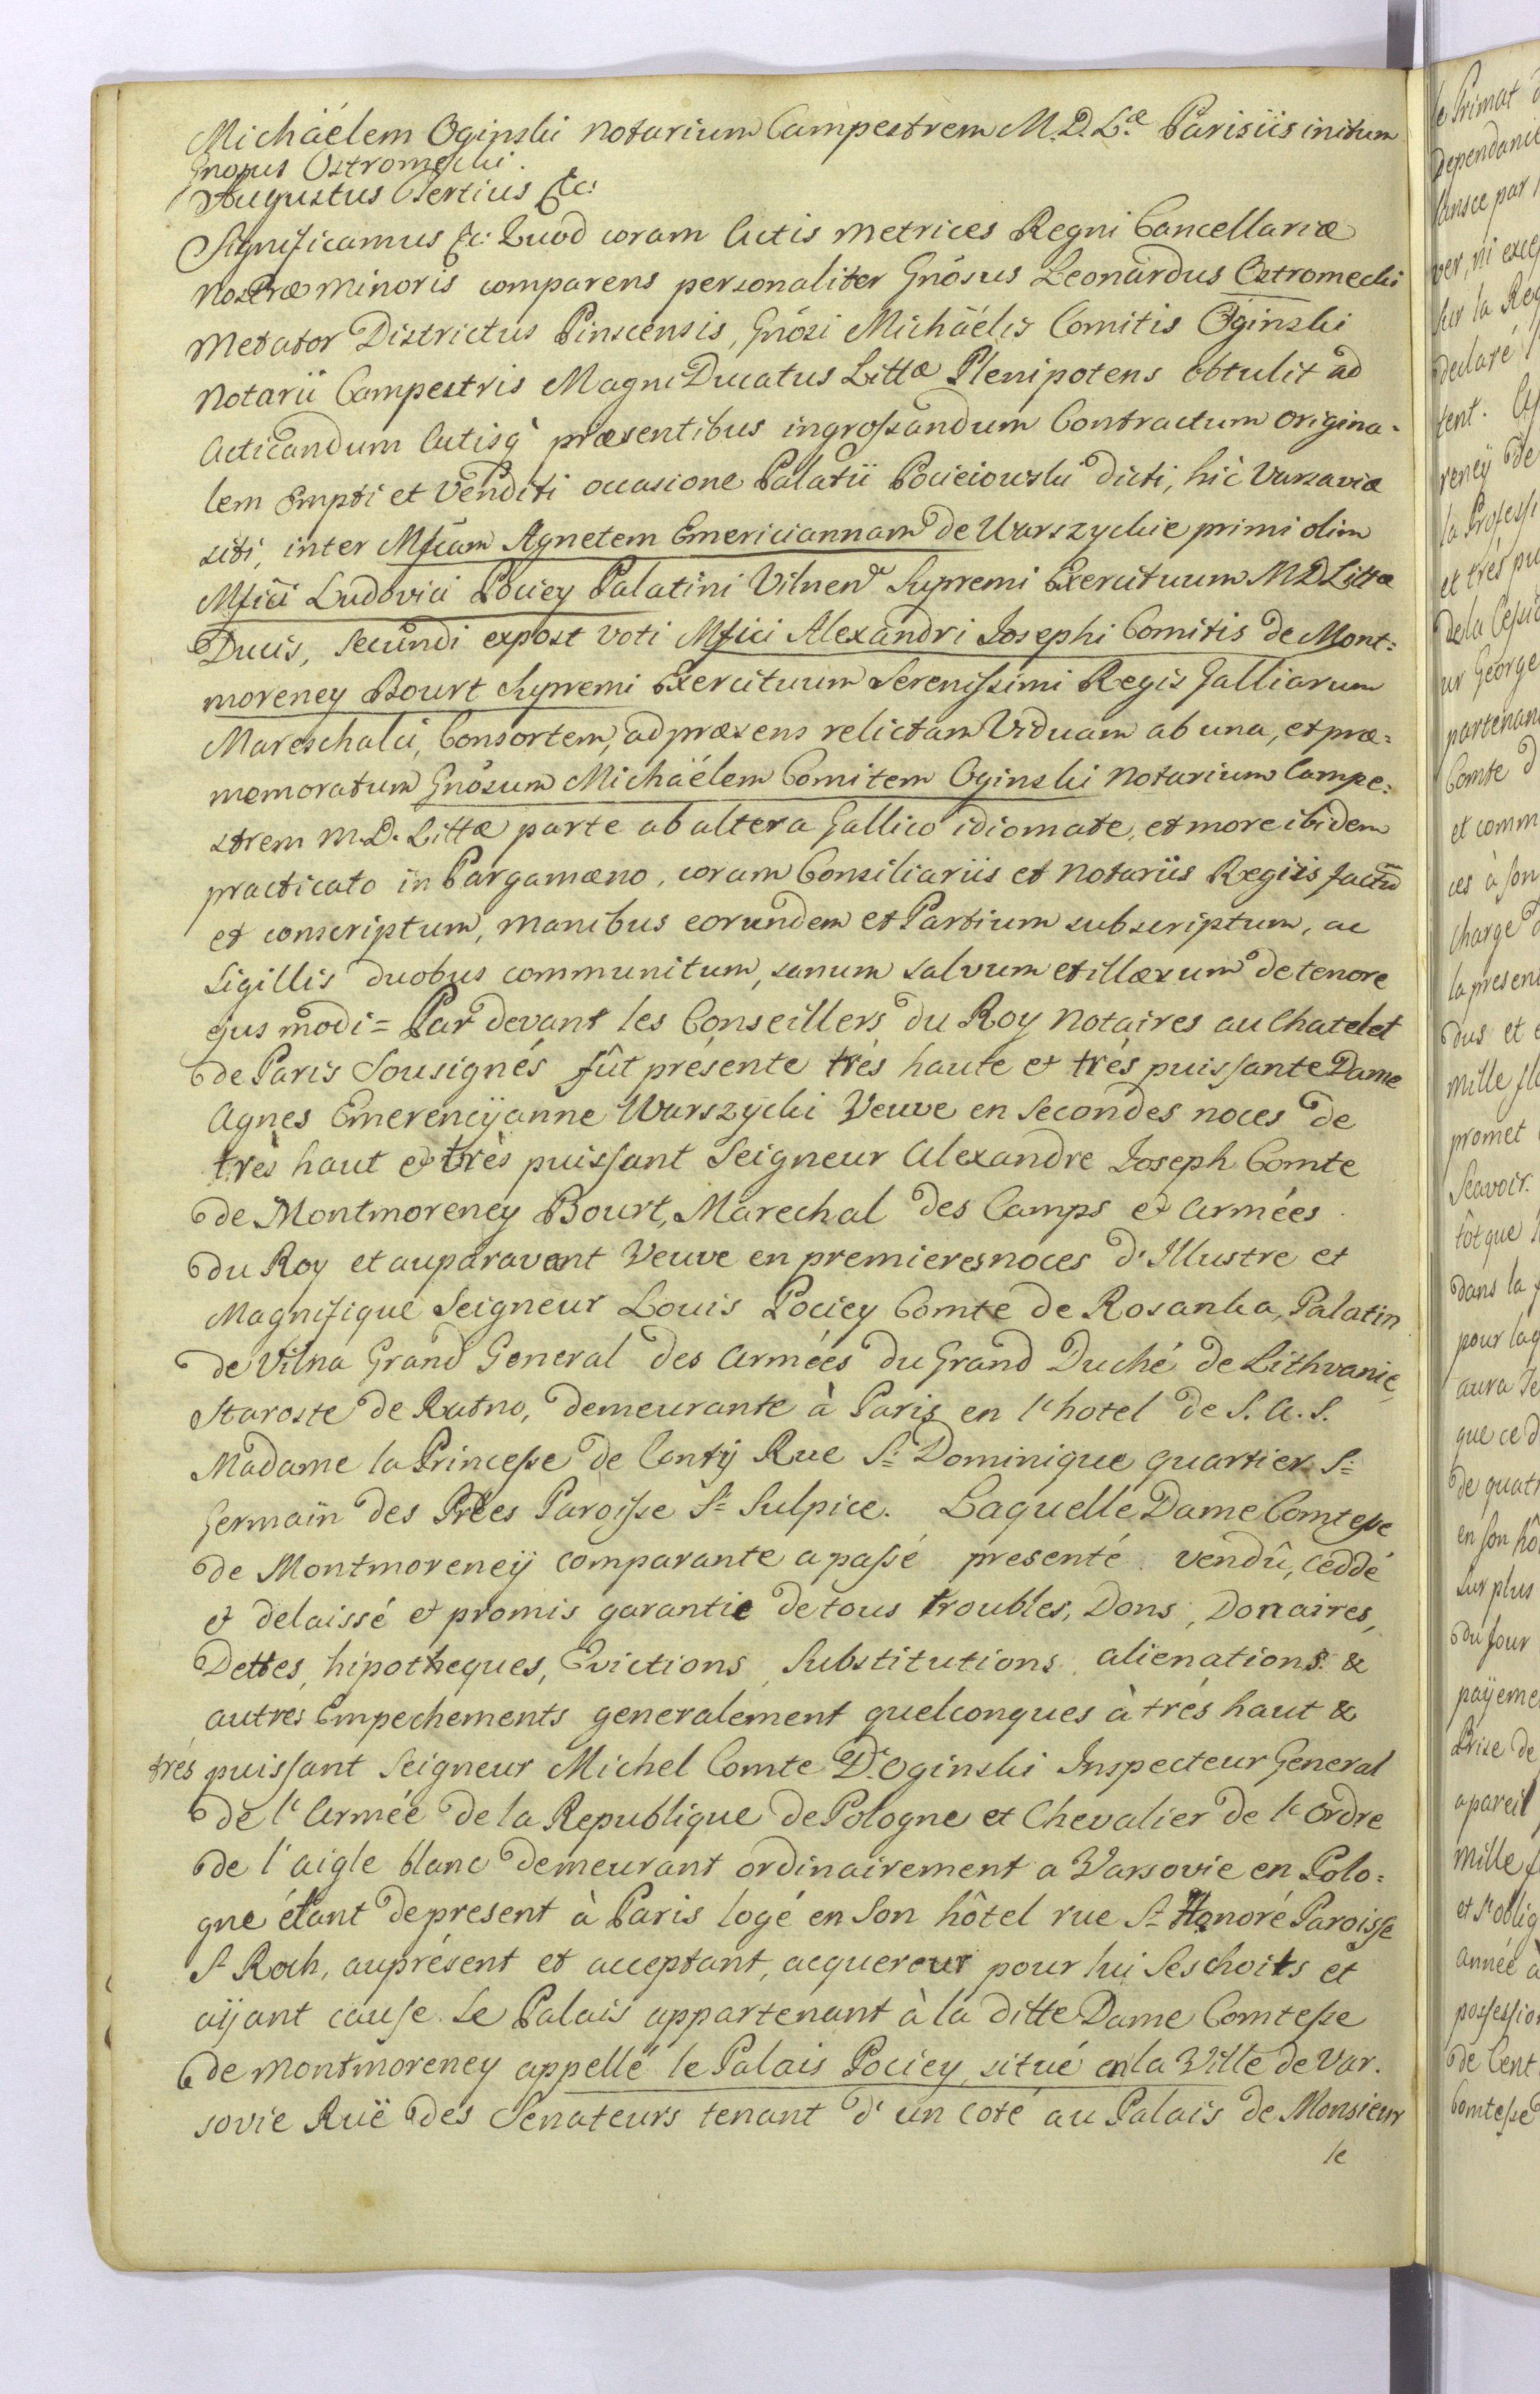 Michäélem Oginski Notarium Campestrem M. D. L.æ Parisiis initum
Gnosus Ostromecki.
Augustus Tertius &c:
Significamus &c: Quod coram Actis Metrices Regni Cancellariæ
Nostræ Minoris comparens personaliter Gnósus Leonardus Ostromecki
Metator Districtus Pinscensis, Gnósi Michäélis Comitis Oginski
Notarii Campestris Magni Ducatus Littæ Plenipotens obtulit ad
Acticandum Actisq' præsentibus ingrossandum Contractum Origina-
lem Empti et Venditi occasione Palatii Pocieiowski dicti, hic Varsaviæ
siti, inter Mficam Agnetem Emericiannam de Warszyckie primi olim
Mfici Ludovici Pociey Palatini Vilnen Supremi Exercituum M D Littæ
Ducis, Secundi expost voti Mfici Alexandri Josephi Comitis de Mont=
moreney Bourt Supremi Exercituum Serenissimi Regis Galliarum
Mareschalci, Consortem, ad præsens relictam Viduam ab una, et præ=
memoratum Gnósum Michäélem Comitem Oginski Notarium Campe=
strem M. D. Littæ parte ab altera Gallico idiomate, et more ibidem
practicato in Pargamæno, coram Consiliariis et Notariis Regiis factu
et conscriptum, manibus eorundem et Partium subscriptum, ac
Sigillis duobus communitum, sanum salvum et illæsum de tenore
ejus modi = Par devant les Conseillers du Roy Notaires au Chatelet
de Paris Sousignés fût présente trés haute et trés puissante Dame
Agnes Emerencÿanne Warszycki Veuve en Secondes noces de
très haut et très puissant Seigneur Alexandre Joseph Comte
de Montmoreney Bourt, Marechal des Camps et Armées
du Roy et auparavent Veuve en premieres noces d'Illustre et
Magnifique Seigneur Louis Pociey Comte de Rosanka, Palatin
de Vilna Grand General des Armées du Grand Duché de Lithvanie,
Staroste de Ratno, demeurante à Paris en l'hotel de S. A. S.
Madame la Princesse de Contÿ Rue St Dominique quartier St
Germaïn des Prées Paroisse St Sulpice. Laquelle Dame Comtesse
de Montmoreneÿ comparante a passé presenté vendû, ceddé
et delaissé et promis garantie de tous troubles, Dons, Donaires,
Dettes, hipotheques, Evictions, Substitutions, alienations &
autres Empechements generalement quelconques à trés haut &
trés puissant Seigneur Michel Comte D'Oginski Inspecteur General
de l'Armée de la Republique de Pologne et Chevalier de l'Ordre
de l'aigle blanc demeurant ordinairement a Varsovie en Polo=
gne étant de present à Paris logé en Son hôtel rue St Honoré Paroisse
St Roch, auprésent et acceptant, acquereur pour lui Seshoits et
aÿant cause Le Palais appartenant à la ditte Dame Comtesse
de Montmoreney appellé le Palais Pociey, situé en la Ville de Var.
sovie Ruë des Senateurs tenant d'un coté au Palais de Monsieur
le